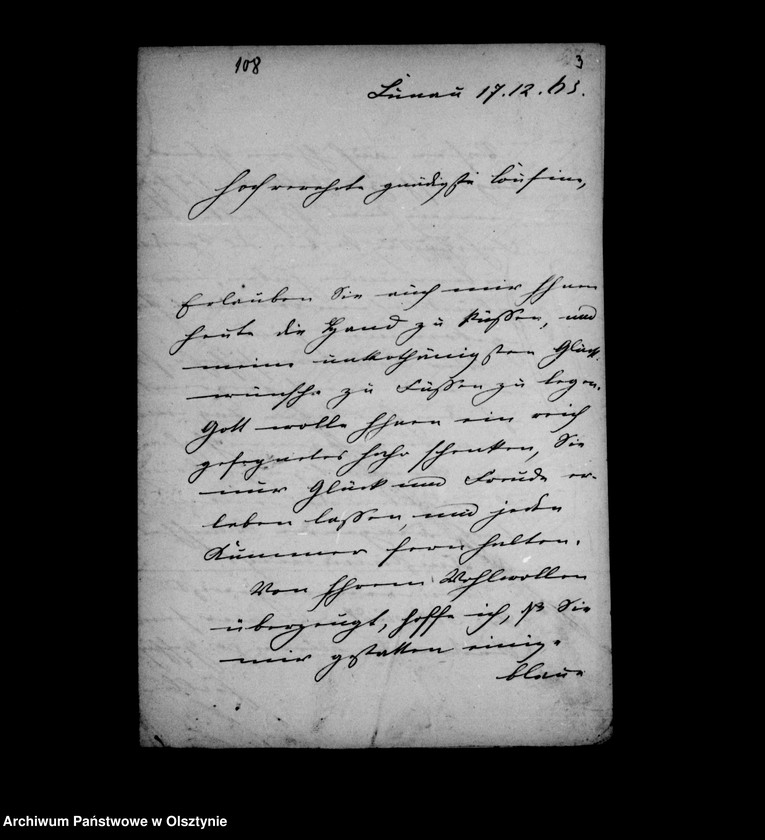 108
3
Lunau 17.12.63.
Hochverehrte gnädigste Cousine,
Erlauben Sie auch mir Ihnen
heute die Hand zu küssen, und
meine unterthänigsten Glück-
wünsche zu Füssen zu legen.
Gott wolle Ihnen ein reich
gesegnetes Jahr schenken, Sie
nur Glück und Freude er-
leben lassen, und jeden
Kummer fern halten.
Von Ihrem Wohlwollen
überzeugt, hoffe ich, Sie
mir gestatten einige
blaue
Archiwum Państwowe w Olsztynie